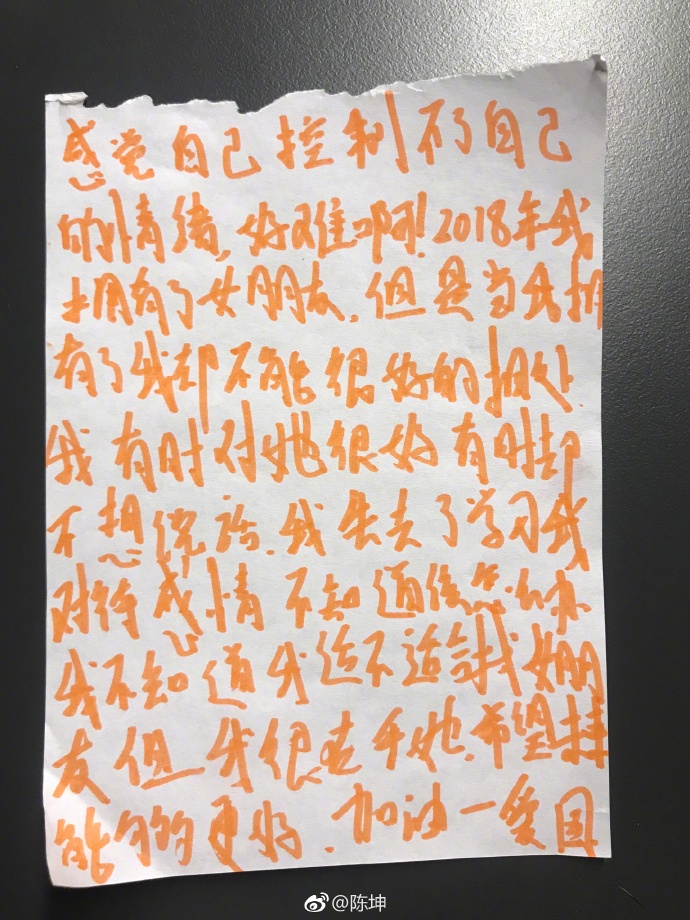 感觉自己控制不了自己
的情绪,好难啊!2018年我
拥有了女朋友,但是当我拥
有了我却不能很好的相处
我有时对她很好有时却
不想说话.我失去了学习我
对待感情不知道怎么办
我不知道我适不适合我女朋
友但我很在乎她.希望
能够更好.加油一爱国
@陈坤